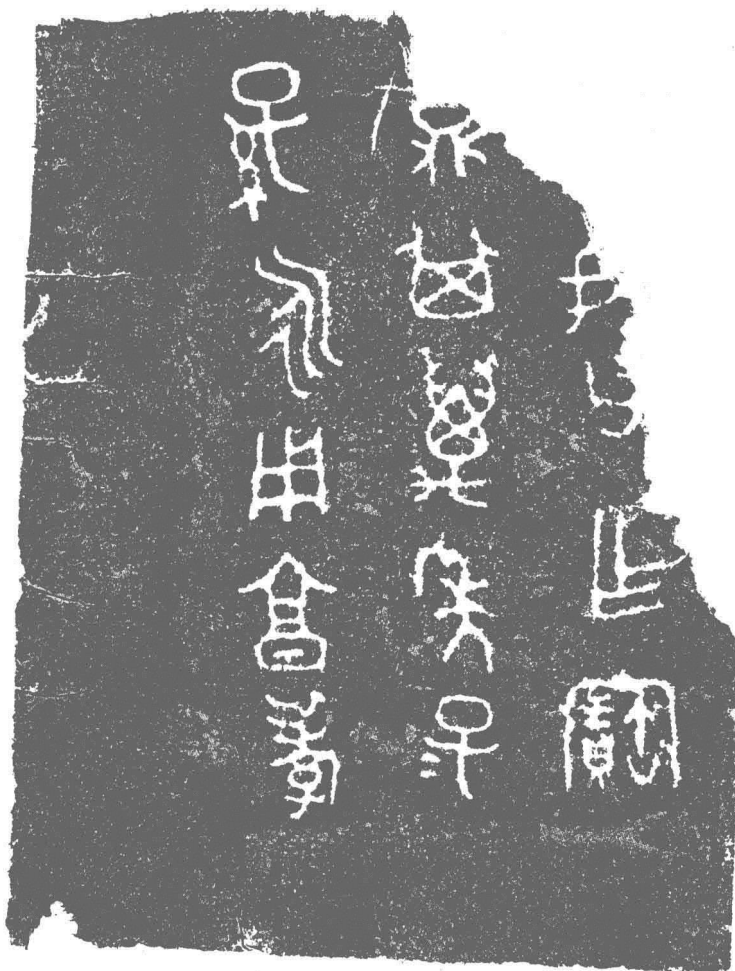 乍寶
鼎其萬年子＝
孫永用享孝